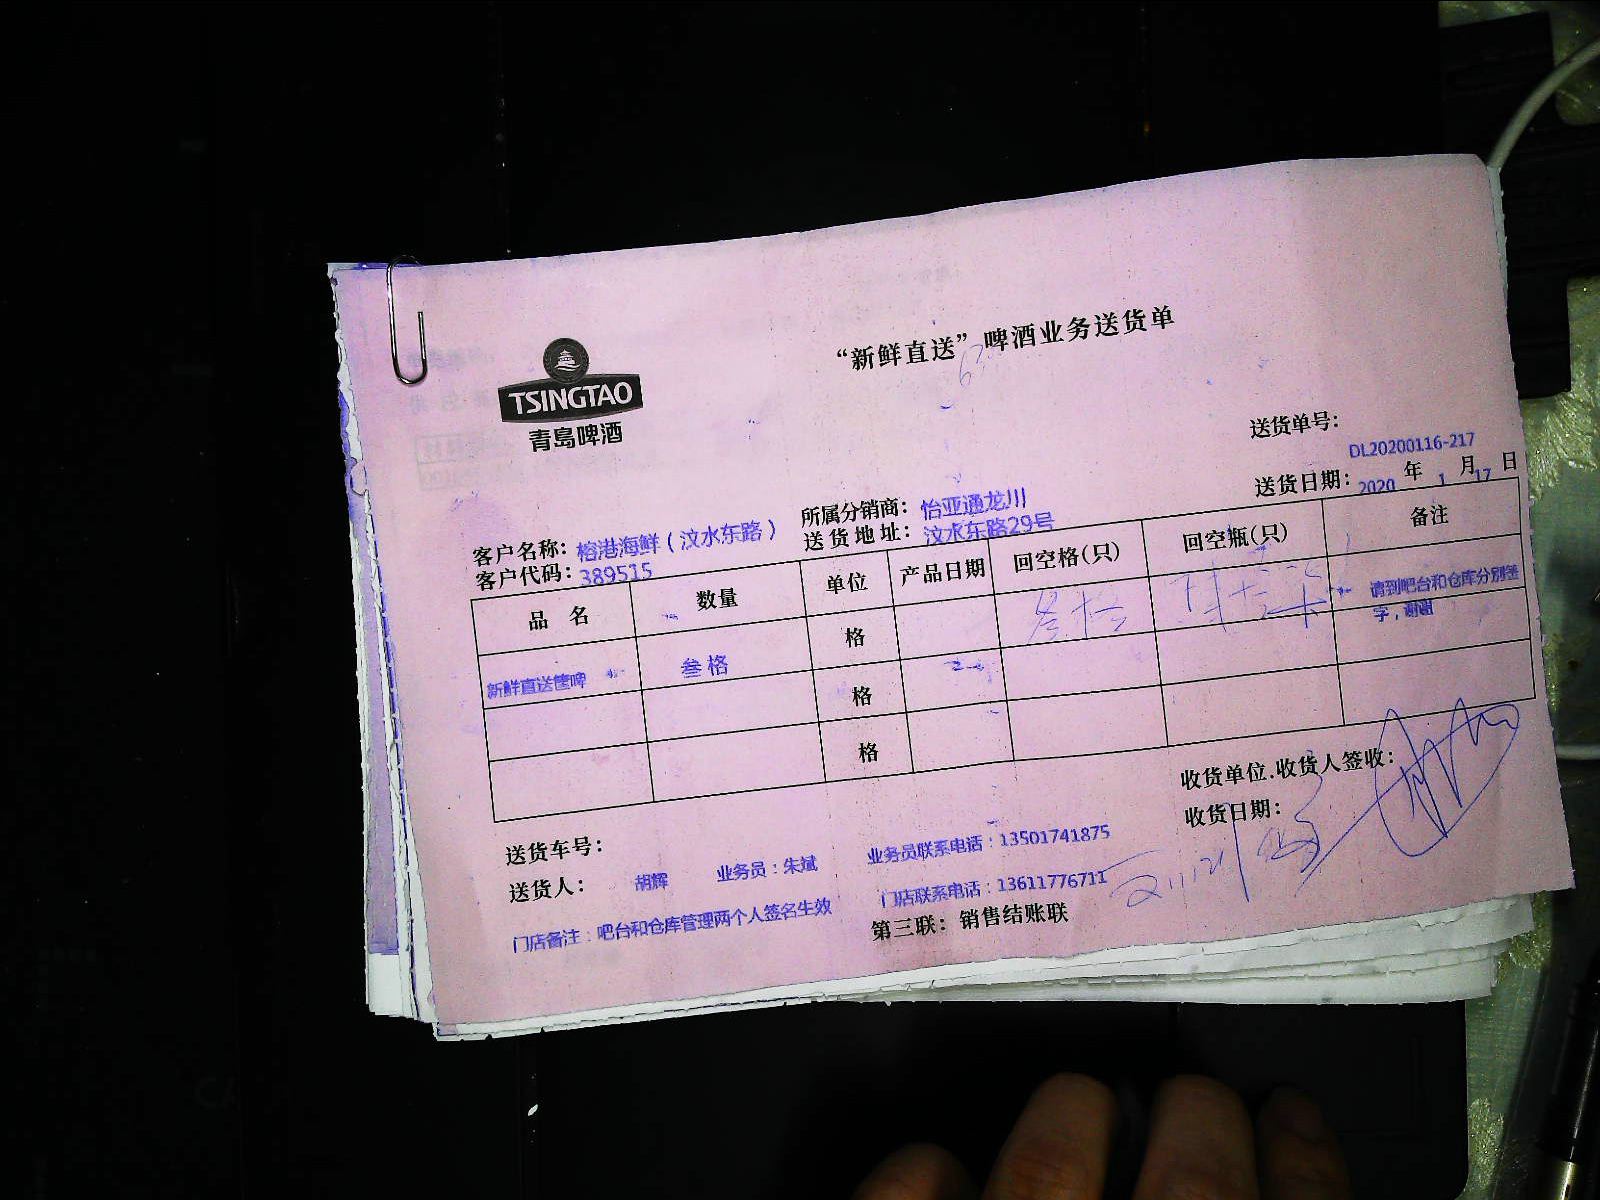 “新鲜直送”啤酒业务送货单
TSINGTAO
青岛啤酒
送货单号：
DL20200116-217
送货日期：2020 年 1 月 17 日
所属分销商：怡亚通龙川
客户名称：榕港海鲜（汶水东路）
送货地址：汶水东路29号
客户代码：389515
品 名 数量 单位 产品日期 回空格(只) 回空瓶(只) 备注
新鲜直送筐啤 叁格 格 叁格 请到吧台和仓库分别签
字，谢谢
格
格
收货单位.收货人签收：
收货日期：
送货车号：
送货人： 胡辉 业务员：朱斌 业务员联系电话：13501741875
门店联系电话：13611776711
门店备注：吧台和仓库管理两个人签名生效
第三联：销售结账联